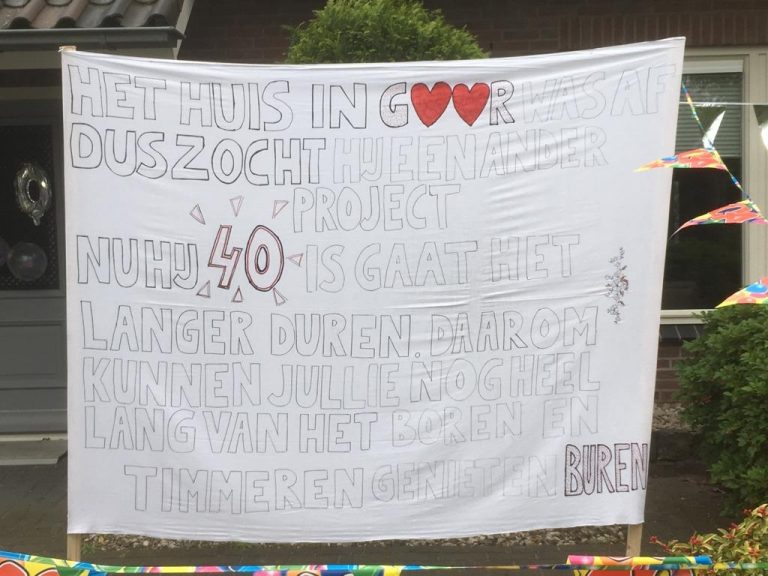 HET HUIS IN G♥♥R WAS AF
DUS ZOCHT HIJ EEN ANDER
PROJECT
NU HIJ 40 IS GAAT HET
LANGER DUREN. DAAROM
KUNNEN JULLIE NOG HEEL
LANG VAN HET BOREN EN
TIMMEREN GENIETEN BUREN